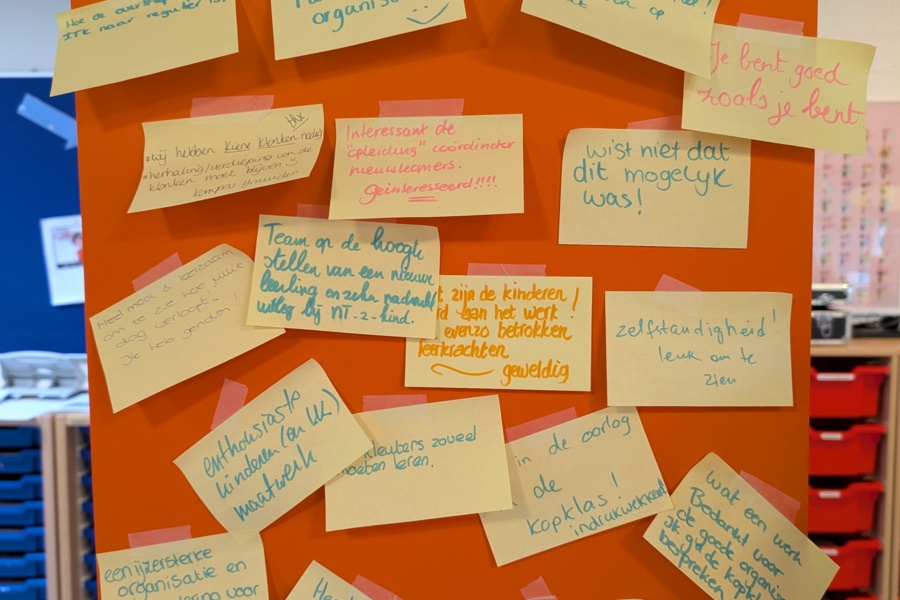 Hoe de overstap
ITK naar regulier is.
organisa
op
Je bent goed
zoals je bent
wij hebben kleine klanken nodig
herhaling/verdieping van de
klanken moet blijven
Interessant de
"opleiding" coördinator
nieuwkomers.
geïnteresseerd!!!!
wist niet dat
dit mogelyk
was!
Heel mooi & leerzaam
om te zie hoe jullie
dag verloopt!
Ik heb genoten!
Team op de hoogte
stellen van een nieuwe
leerling en zeker nadruk
uitleg bij NT-2-kind.
t zijn de kinderen!
rd aan het werk!
evenzo betrokken
leerkrachten
geweldig
zelfstandigheid!
leuk om te
zien
enthousiaste
kinderen (en LK)
maatwerk
kleuters zoveel
moeten leren.
in de oorlog
de
kopklas!
indrukwekkend
Wat een werk
Bedankt voor
de goede organisa
Ik ga de kopkl
bespreken
een ijzersterke
organisatie en
voor